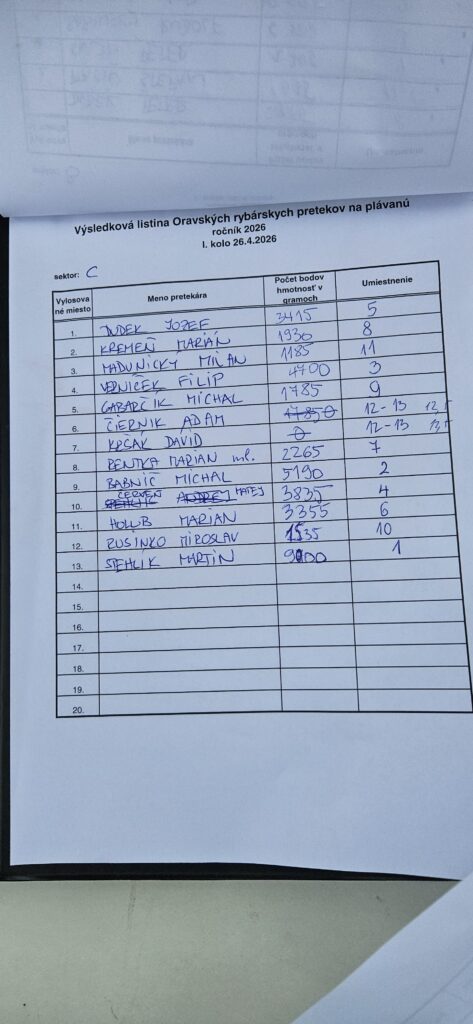 Výsledková listina Oravských rybárskych pretekov na plávanú
ročník 2026
I. kolo 26.4.2026
sektor: C
Vylosova né miesto Meno pretekára Počet bodov hmotnosť v gramoch Umiestnenie
1. JUDEK JOZEF 3415 5
2. KREMEŇ MARIÁN 1930 8
3. MADUNICKÝ MILAN 1185 11
4. VERNIČEK FILIP 4700 3
5. GABARČIK MICHAL 1785 9
6. ČIERNIK ADAM 0 12-13 12,5
7. KRŠÁK DAVID 0 12-13 13,5
8. RENTKA MARIAN ml. 2265 7
9. BABNIČ MICHAL 5190 2
10. ČERVEŇ MATEJ 3825 4
11. HOLUB MARIAN 3355 6
12. RUSINKO MIROSLAV 1535 10
13. STEHLÍK MARTIN 9100 1
14.
15.
16.
17.
18.
19.
20.